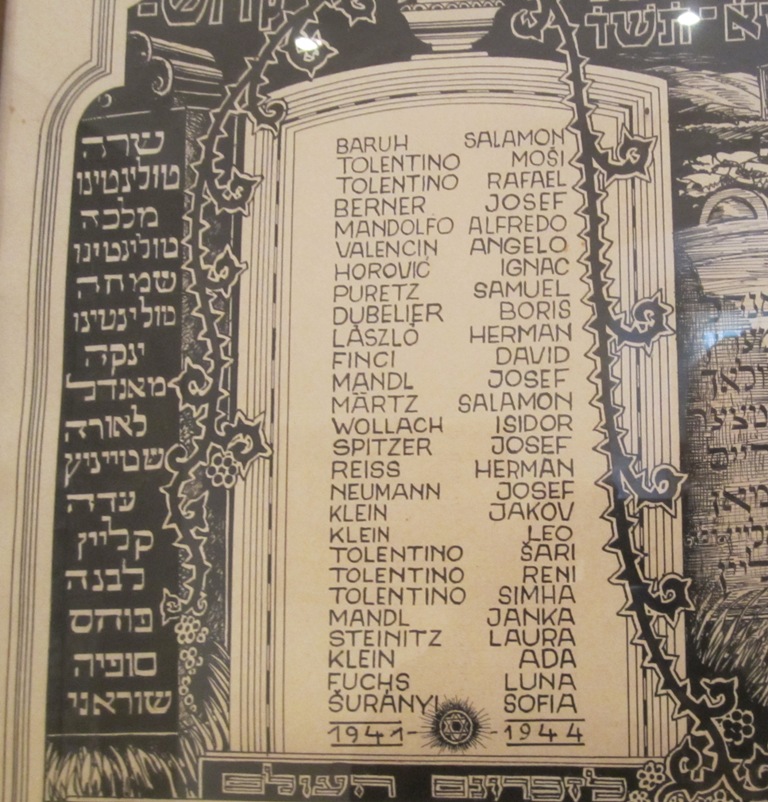 שרה
טולינטינו
מלכה
טולינטינו
שמחה
טולינטינו
ינקה
מאנדל
לאורה
שטייניץ
עדה
קליין
לבנה
פוחס
סופיה
שוראני
BARUH SALAMON
TOLENTINO MOŠI
TOLENTINO RAFAEL
BERNER JOSEF
MANDOLFO ALFREDO
VALENCIN ANGELO
HOROVIĆ IGNAC
PURETZ SAMUEL
DUBELIER BORIS
LÁSZLÓ HERMAN
FINCI DAVID
MANDL JOSEF
MÄRTZ SALAMON
WOLLACH ISIDOR
SPITZER JOSEF
REISS HERMAN
NEUMANN JOSEF
KLEIN JAKOV
KLEIN LEO
TOLENTINO ŠARI
TOLENTINO RENI
TOLENTINO SIMHA
MANDL JANKA
STEINITZ LAURA
KLEIN ADA
FUCHS LUNA
ŠURÁNYI SOFIA
1941-1944
לזכרונם העולם